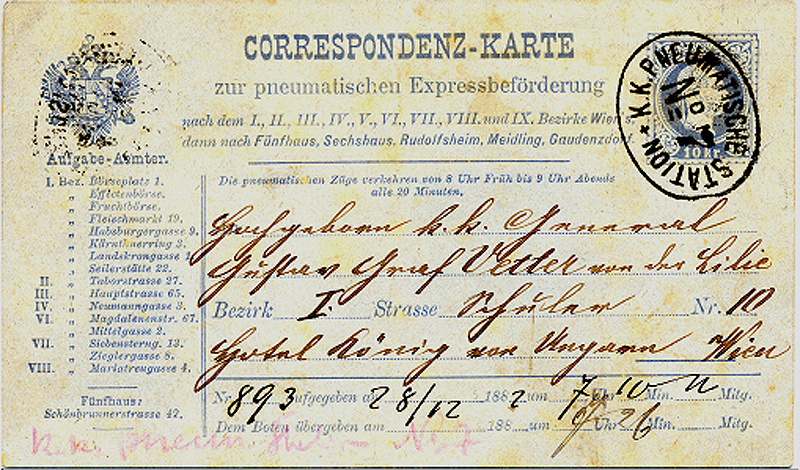 CORRESPONDENZ-KARTE
zur pneumatischen Expressbeförderung
nach dem I., II., III., IV., V., VI., VII., VIII. und IX. Bezirke Wien's
dann nach Fünfhaus, Sechshaus, Rudolfsheim, Meidling, Gaudenzdorf.
K.K. PNEUMATISCHE STATION
No
10 kr.
Aufgabe-Aemter.
I. Bez. Börseplatz 1.
" Effectenbörse.
" Fruchtbörse.
" Fleischmarkt 19.
" Habsburgergasse 9.
" Kärnthnerring 3.
" Landskrongasse 1.
" Seilerstätte 22.
II. " Taborstrasse 27.
III. " Hauptstrasse 65.
IV. " Neumanngasse 3.
VI. " Magdalenenstr. 67.
" Mittelgasse 2.
VII. " Siebensterng. 13.
" Zieglergasse 8.
VIII. " Mariatreugasse 4.
Fünfhaus:
Schönbrunnerstrasse 42.
Die pneumatischen Züge verkehren von 8 Uhr Früh bis 9 Uhr Abends
alle 20 Minuten.
Hochgeboren k. k. General
Gustav Graf Vetter von der Lilie
Bezirk I. Strasse Schuler Nr. 10
Hotel König von Ungarn Wien
Nr. 893 aufgegeben am 28/12 1882 um 7 Uhr 10 Min. N Mitg.
Dem Boten übergeben am 188 um Uhr 26 Min. Mitg.
k.k. pneum. Stat. - No 7